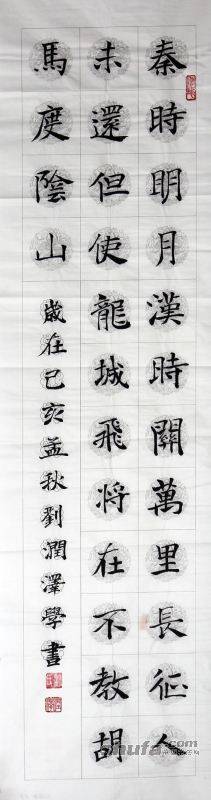 秦時明月漢時關萬里長征人
未還但使龍城飛将在不教胡
馬度陰山
歲在己亥孟秋劉潤澤學書